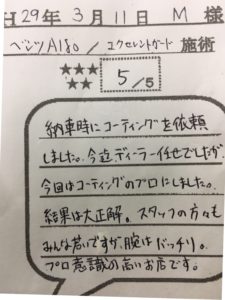 H29年3月11日 M 様
ベンツA180 / エクセレントガード 施術
★★★
★★
5/5
納車時にコーティングを依頼
しました。今迄ディーラー任せでしたが、
今回はコーティングのプロにしました。
結果は大正解。スタッフの方々も
みんな若いですが、腕はバッチリ。
プロ意識の高いお店です。